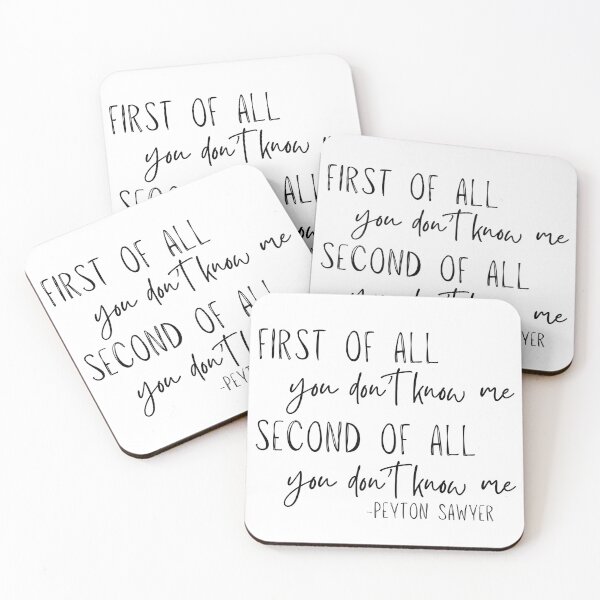 FIRST OF ALL
you don't know me
ALL
FIRST OF ALL
you don't know me
SECOND OF ALL
me
FIRST OF ALL
you don't know me
SECOND OF ALL
you don't
FIRST OF ALL
you don't know me
SECOND OF ALL
you don't know me
-PEYTON SAWYER